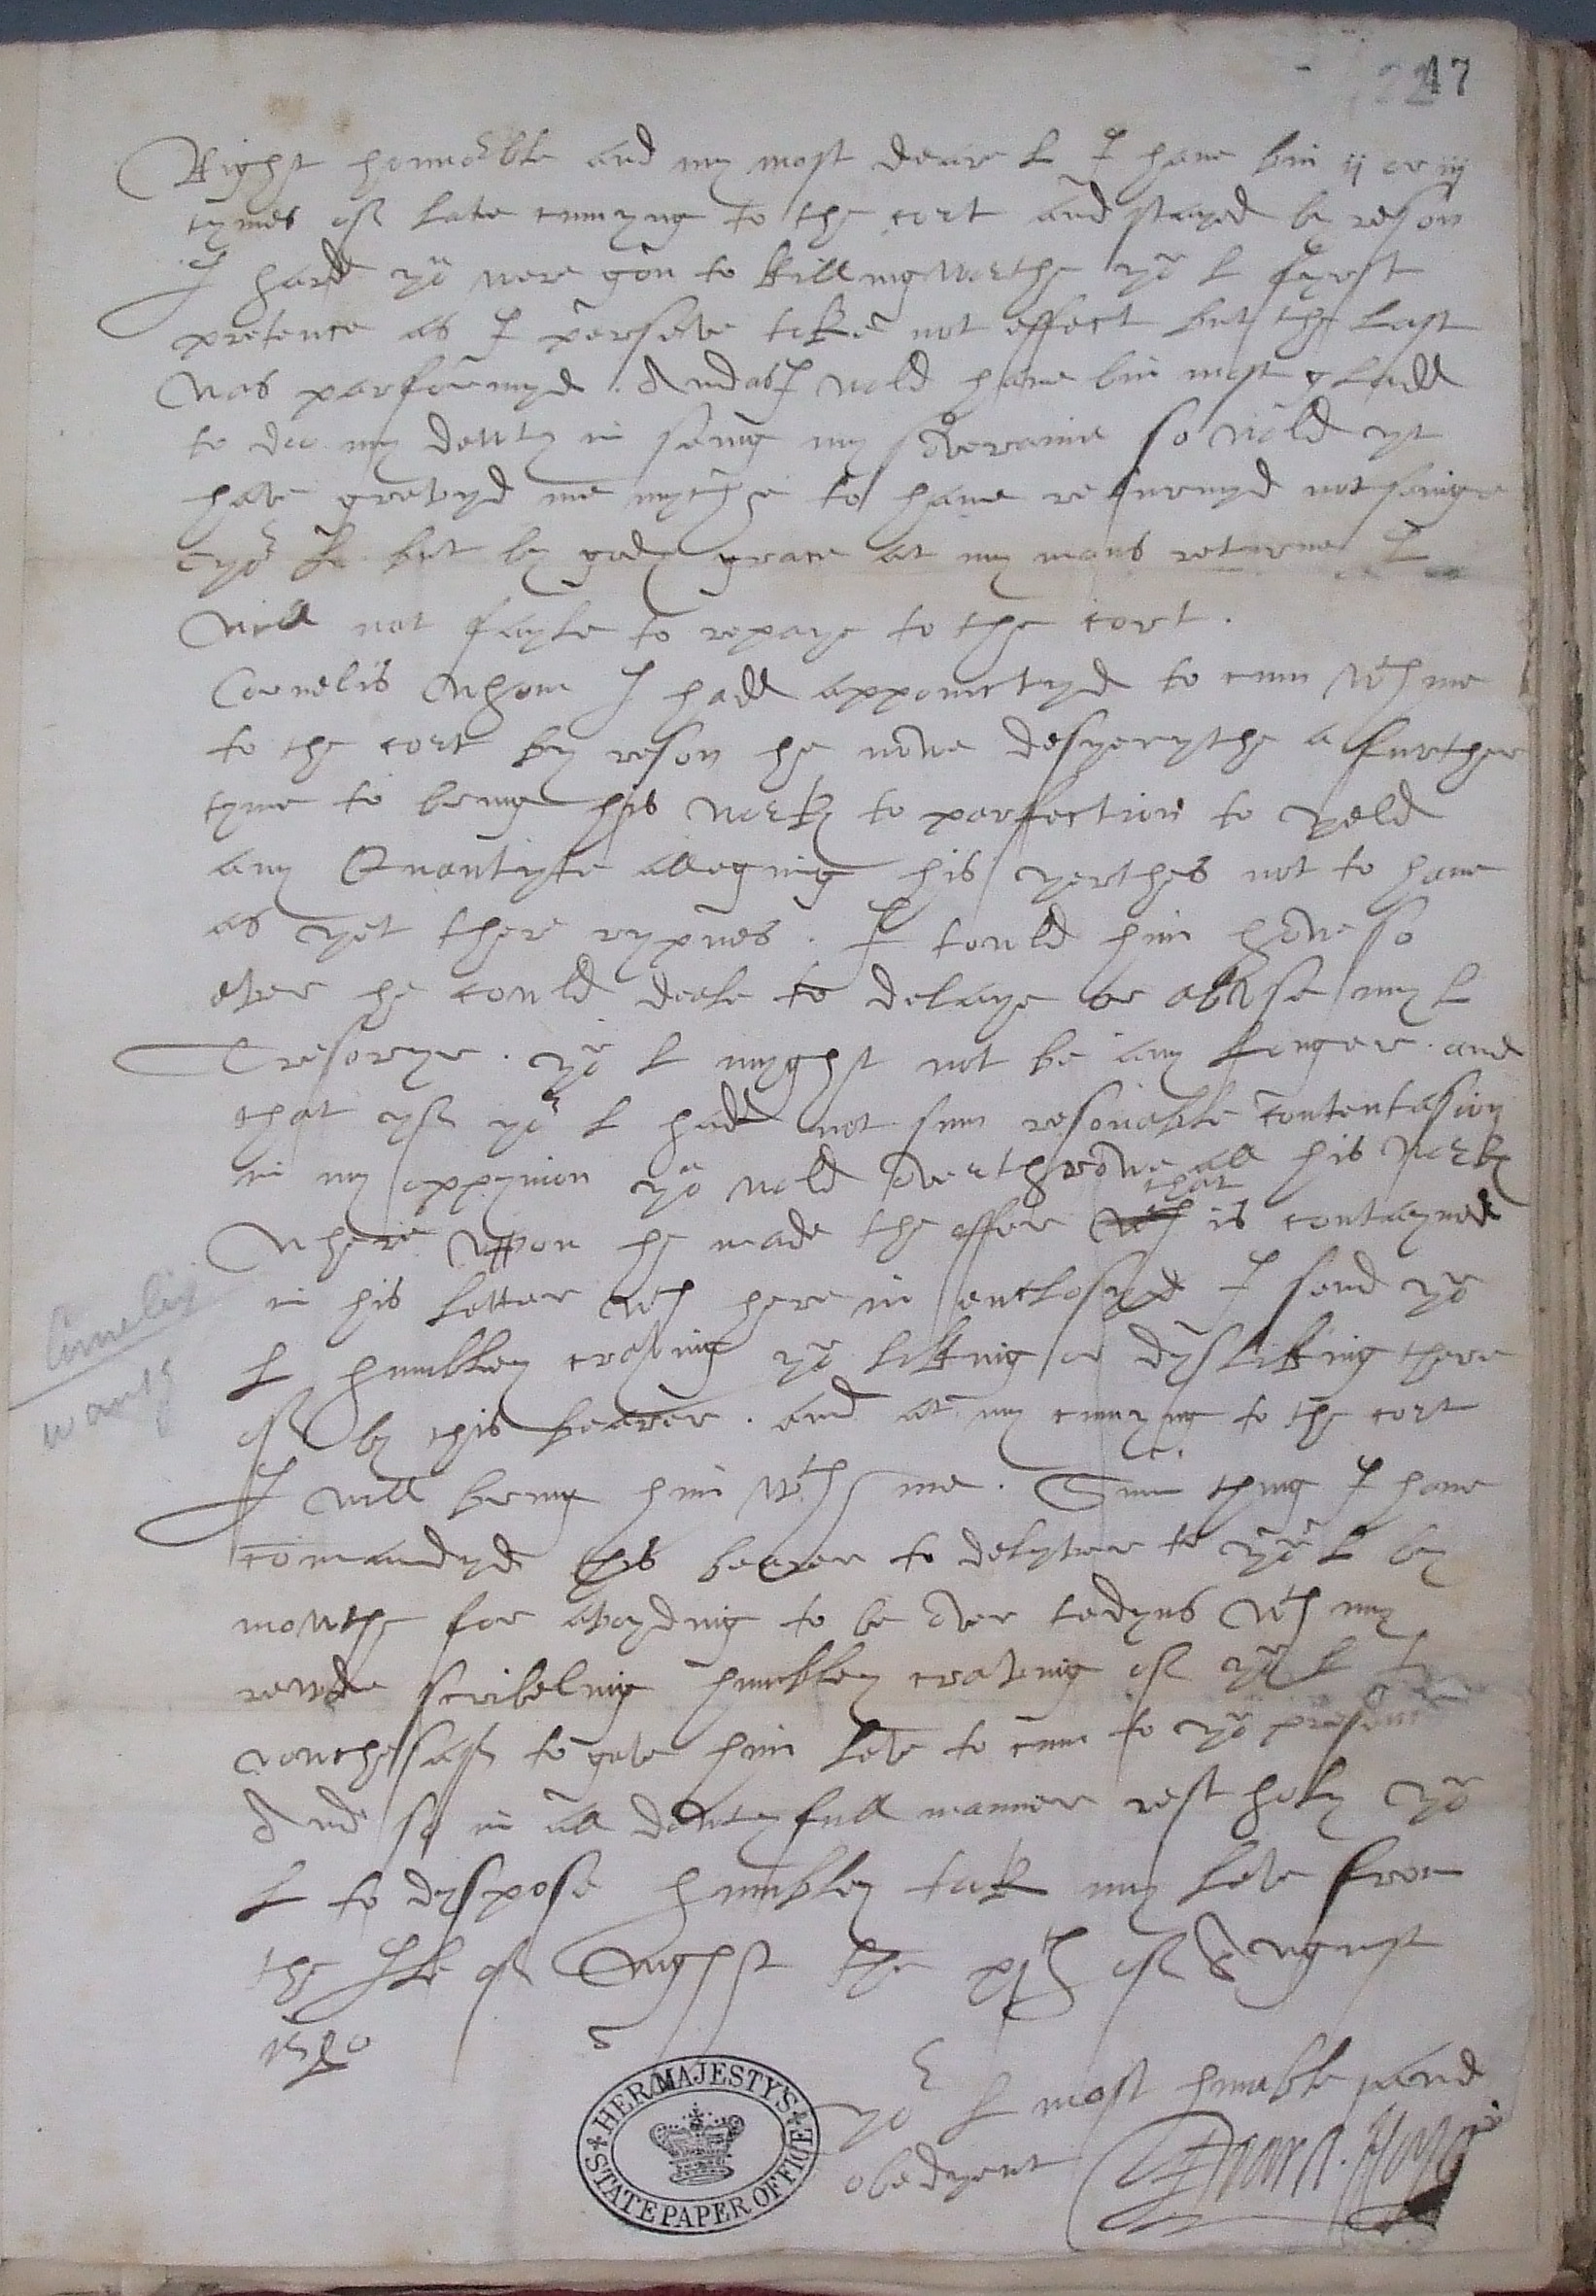 2217
Right honnorble and my most deare L I have bin ij or iij
tymes off late cumyng to the cort and stayed by reson
I hard yor were gon to Killingworthe yor L fyrst
pretence as I perseve toke not effect but the last
was parformyd. And as I wold have bin most gladd
to doo my deuty in seing my soveraine so wold yt
have grevyd me myche to have returnyd not seinge
yor L but by gods grace at my mans returne I
will not fayle to repaye to the cort.
Cornelis whom I hadd appoinctyd to cum wth me
to the cort by reson he nowe desyerythe a further
tyme to bring his work to parfection to yeld
any Quantyte alleging his yerthes not to have
as yet there rypnes. I tould him howe so
ever he could deale to delaye or abuse my L
Tresorye. yor L myght not be any longer. and
that yff yor L hadd not sum resonable contentasion
in my oppynion yor wold overthrowe all his work
where uppon he made the offer wch that is contayned
in his letter wch here in enclosyd I send yor
L humbley craving yor liking or dysliking there
off by this bearer. and at my cumyng to the cort
I will bring him wth me. Sum thing I have
comandyd this bearer to delyver to yor L by
mowthe for avoyding to be over tedyus wth my
rewde scribeling humbley craving off yor L to
vouchesaff to geve him leve to cum to yor presence
And so in all deutyfull manner rest holy yor
L to dyspose humbley tak my leve from
the Ile of Wight the xth off August
1580
Cornelis
wants
yor L most humble and
obedyent Edward Horsey
HER MAJESTY'S STATE PAPER OFFICE